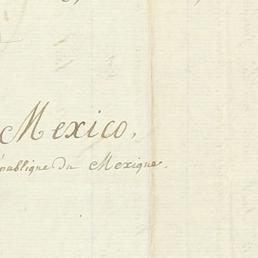 Mexico,
épublique du Mexique.